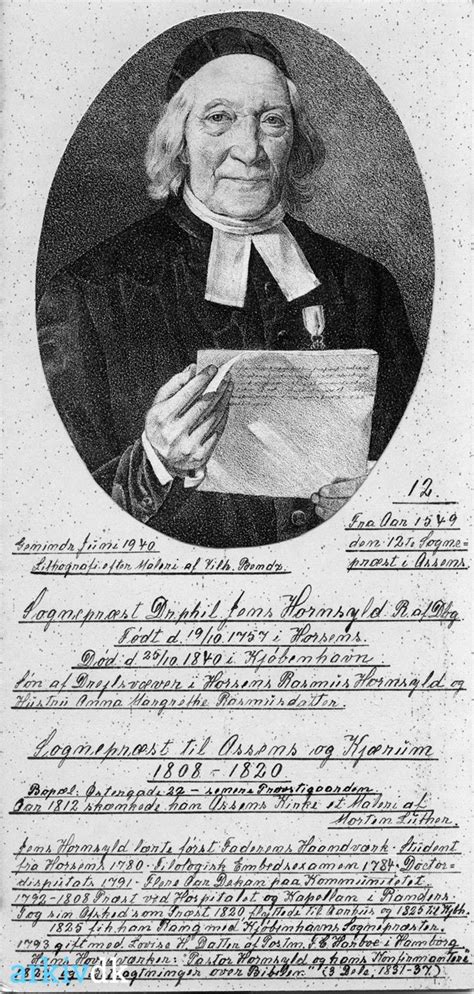 12
Fra Aar 1549
den 12te Sogne-
præst i Assens.
Juni 1940
Lithografi efter Maleri af Vilh. Bendz.
Sognepræst Dr. phil. Jens Hornsyld R. af Dbg.
Født d. 19/10 1757 i Horsens.
Død d. 25/10 1840 i Kjøbenhavn
Søn af Drejlsvæver i Horsens Rasmus Hornsyld og
Hustru Anna Margrethe Rasmusdatter.
Sognepræst til Assens og Kjærum
1808 - 1820
Bopæl: Østergade 22 - senere Provstigaarden.
Aar 1812 skænkede han Assens Kirke et Maleri af
Morten Luther.
Jens Hornsyld lærte først Faderens Haandværk - Student
fra Horsens 1780. Filologisk Embedsexamen 1784. Doctor-
disputats 1791. Flere Aar Dekan paa Kommunitetet.
1792-1808 Præst ved Hospitalet og Kapellan i Randers.
Tog sin Afsked som Præst 1820 flyttede til Aarhus og 1825 til Kjbh.
1825 fik han Rang med Kjøbenhavns Sognepræster.
1793 gift med Lovise H. Datter af Pastm. J. C. Harboe i Hamborg
Hans Hovedværker: "Pastor Hornsyld og hans Konfirmander
over Bibelen" (3 Dele, 1831-37).
arkivdk